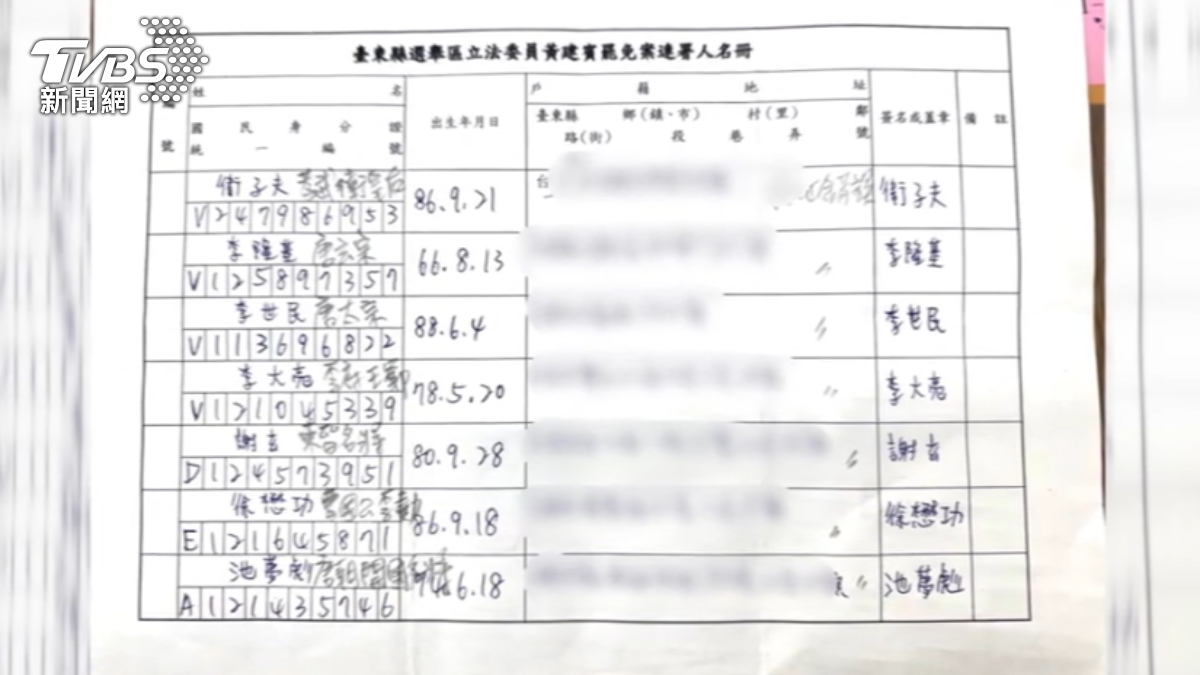 TVBS
新聞網
臺東縣選舉區立法委員黃建賓罷免案連署人名冊
編號
姓 名
國民身分證
統一編號
出生年月日
戶籍地址
臺東縣 鄉(鎮、市) 村(里) 鄰
路(街) 段 巷 弄 號
簽名或蓋章
備註
衛子夫
V247986953
86.9.21
台
衛子夫
李隆基 唐玄宗
V125897357
66.8.13
〃
李隆基
李世民 唐太宗
V113696822
88.6.4
〃
李世民
李大亮
V121045339
78.5.20
〃
李大亮
謝玄 東晉名將
D124573951
80.9.28
〃
謝玄
徐懋功
E121645871
86.9.18
〃
徐懋功
池夢彪
A121435746
6.18
〃
池夢彪